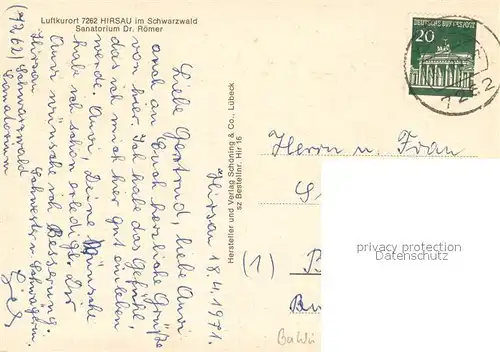 Luftkurort 7262 HIRSAU im Schwarzwald
Sanatorium Dr. Römer
Hirsau 18.4.1971.
Liebe Gertrud, liebe Anni
auch an Euch herzliche Grüße
von hier. Ich habe das Gefühl,
das ich mich hier gut einleben
werde. Anni, Deine Wünsche
habe ich schon erledigt. Dir
Anni wünsche ich Besserung.
Schwester u. Schwägerin.
Hirsau
(7262) Schwarzwald
Sanatorium
Hersteller und Verlag Schöning & Co., Lübeck
sz Bestellnr. Hir 16
DEUTSCHE BUNDESPOST
20
7262
Herrn u. Frau
(1)
privacy protection
Datenschutz
BaWü